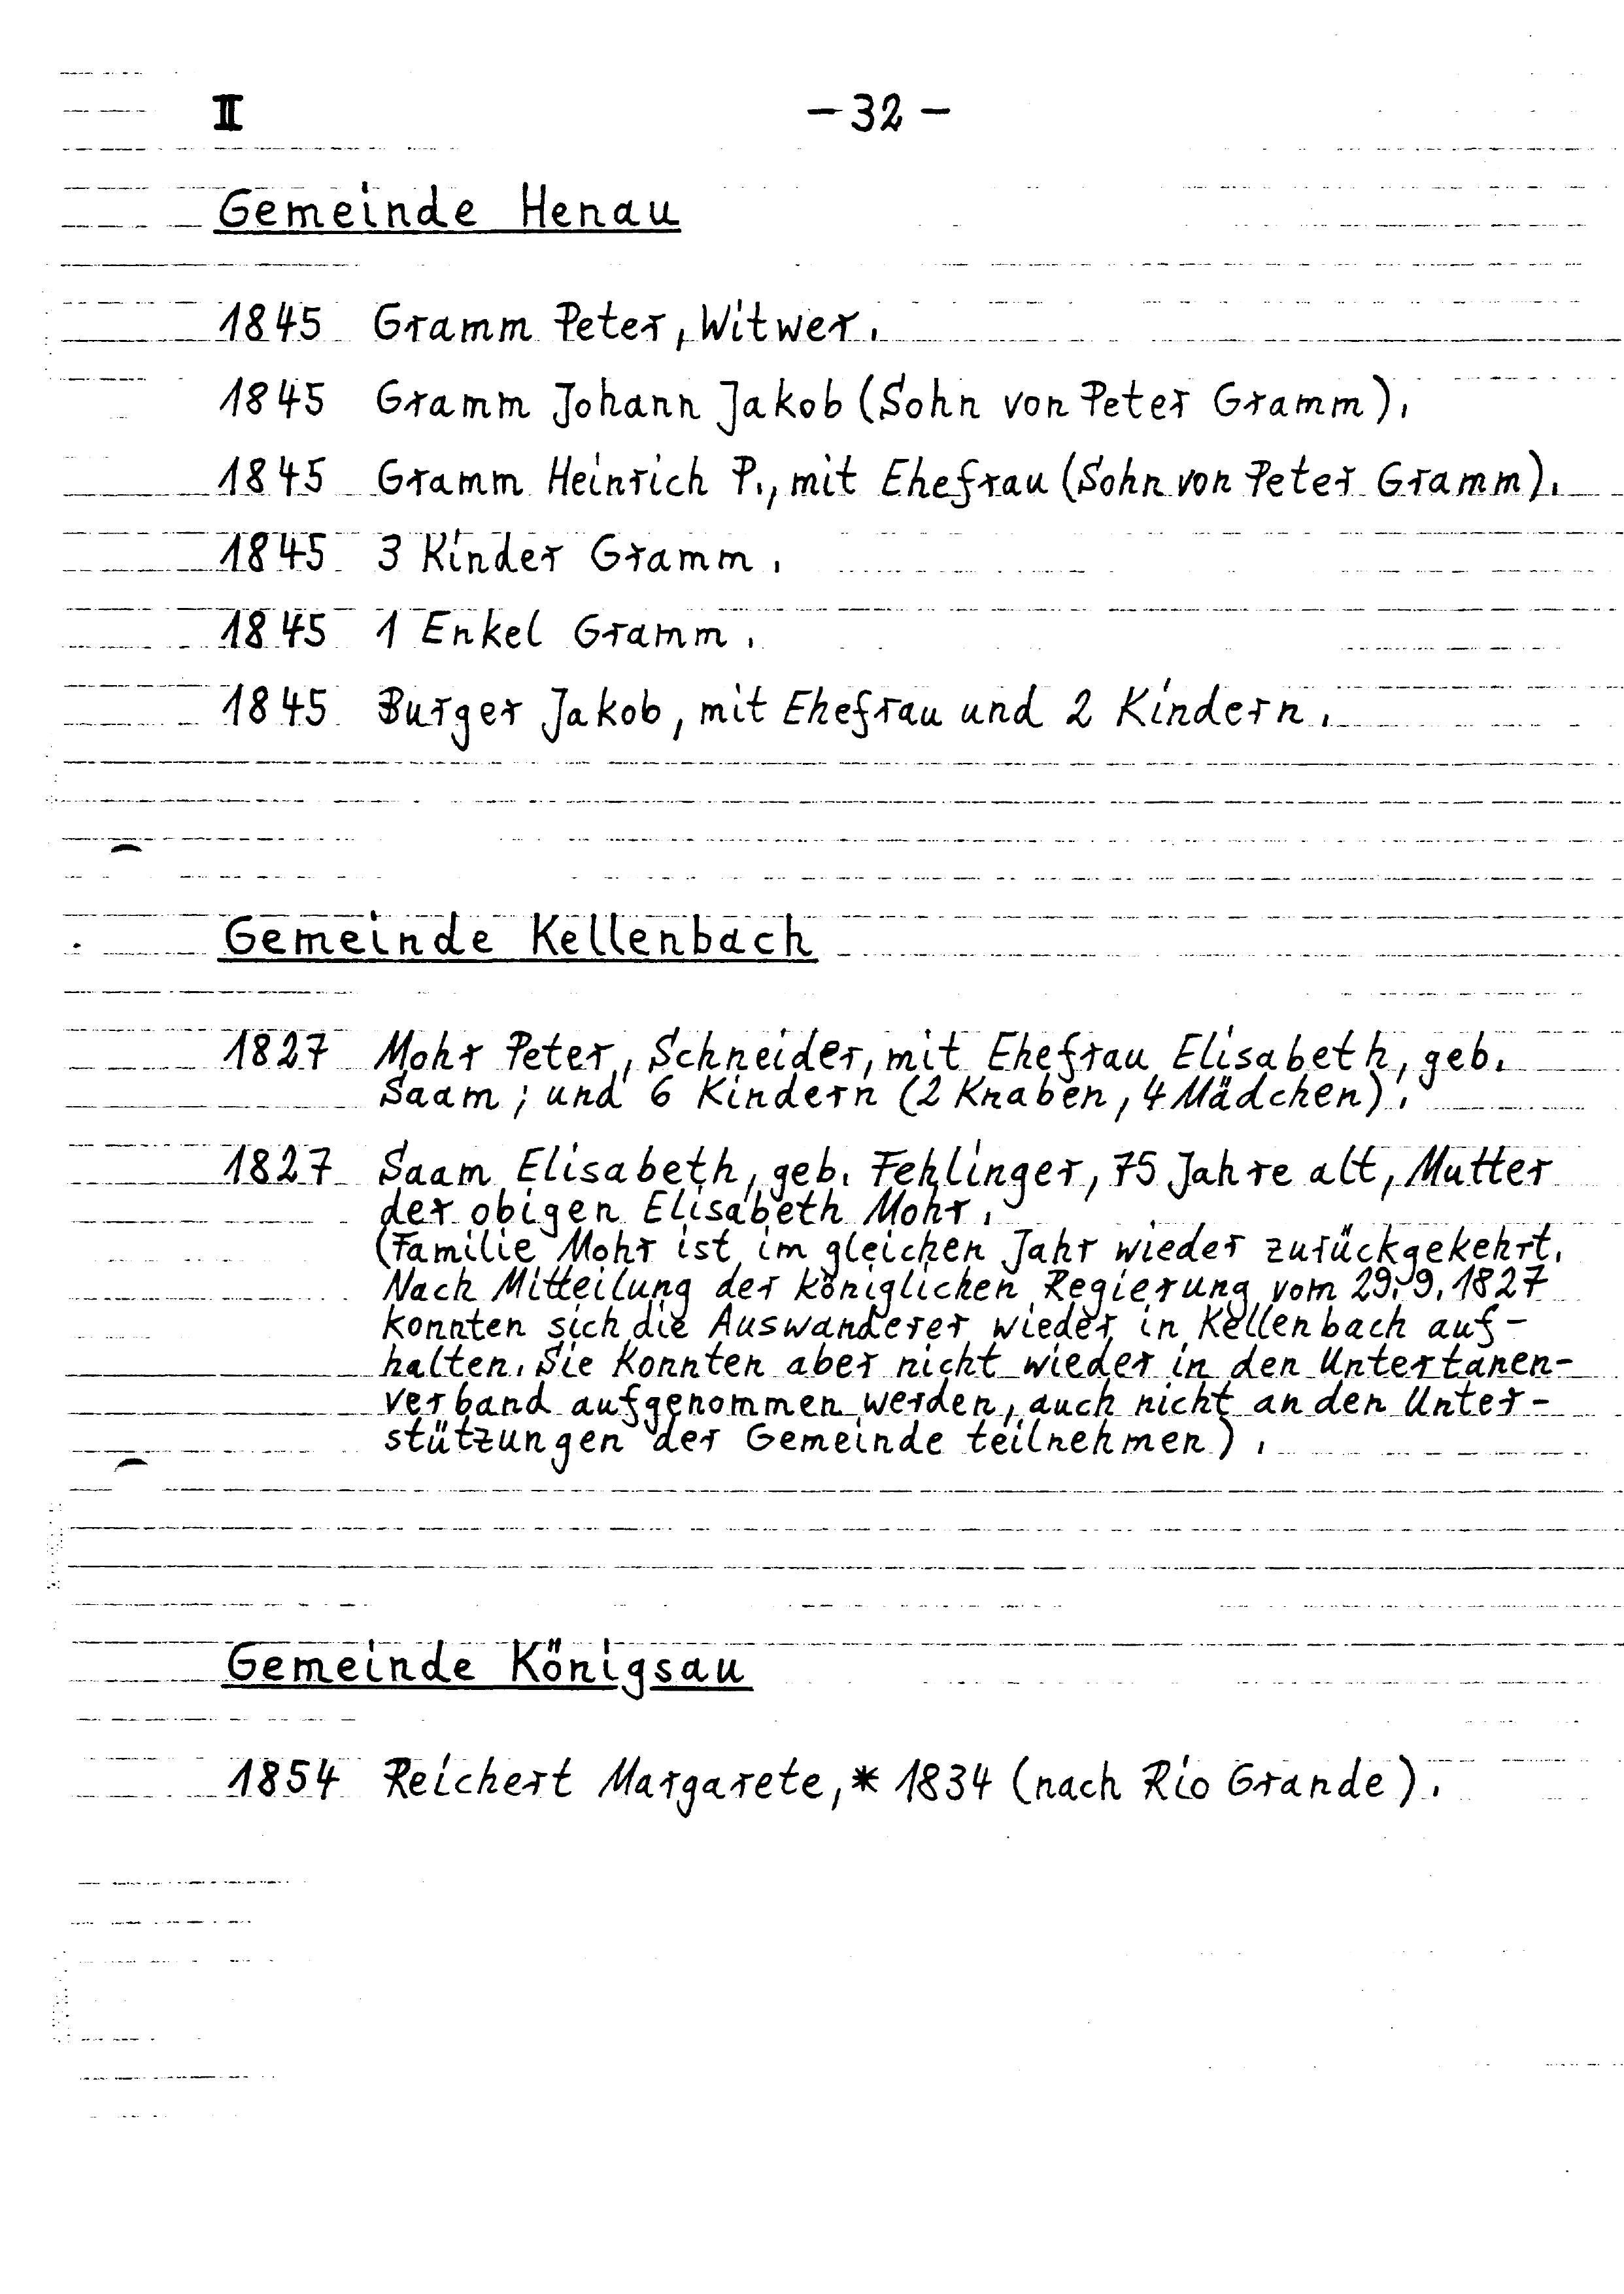 II
- 32 -
Gemeinde Henau
1845 Gramm Peter, Witwer.
1845 Gramm Johann Jakob (Sohn von Peter Gramm).
1845 Gramm Heinrich P., mit Ehefrau (Sohn von Peter Gramm).
1845 3 Kinder Gramm.
1845 1 Enkel Gramm.
1845 Burger Jakob, mit Ehefrau und 2 Kindern.
Gemeinde Kellenbach
1827 Mohr Peter, Schneider, mit Ehefrau Elisabeth, geb.
Saam; und 6 Kindern (2 Knaben, 4 Mädchen).
1827 Saam Elisabeth, geb. Fehlinger, 75 Jahre alt, Mutter
der obigen Elisabeth Mohr.
(Familie Mohr ist im gleichen Jahr wieder zurückgekehrt.
Nach Mitteilung der königlichen Regierung vom 29.9.1827
konnten sich die Auswanderer wieder in Kellenbach auf-
halten. Sie konnten aber nicht wieder in den Untertanen-
verband aufgenommen werden, auch nicht an den Unter-
stützungen der Gemeinde teilnehmen).
Gemeinde Königsau
1854 Reichert Margarete, * 1834 (nach Rio Grande).